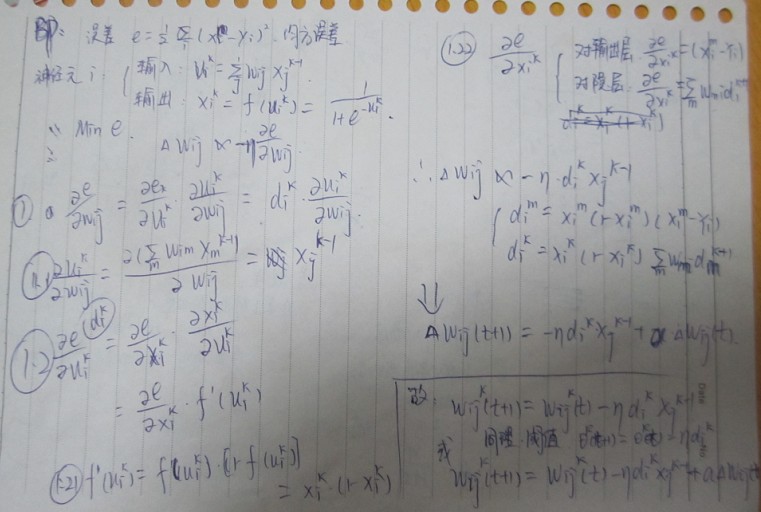 BP: 误差 e = ½ Σ (xᵢᵐ - yᵢ)². 均方误差
神经元 i: { 输入: uᵢᵏ = Σⱼ wᵢⱼ xⱼᵏ⁻¹
输出: xᵢᵏ = f(uᵢᵏ) = 1/(1+e^(-uᵢᵏ)).
∵ Min e.
∴ Δwᵢⱼ ∝ -η ∂e/∂wᵢⱼ
① ∂e/∂wᵢⱼ = ∂e/∂uᵢᵏ · ∂uᵢᵏ/∂wᵢⱼ = dᵢᵏ · ∂uᵢᵏ/∂wᵢⱼ.
1.1 ∂uᵢᵏ/∂wᵢⱼ = ∂(Σₘ wᵢₘ xₘᵏ⁻¹)/∂wᵢⱼ = xⱼᵏ⁻¹
1.2 ∂e/∂uᵢᵏ (dᵢᵏ) = ∂e/∂xᵢᵏ · ∂xᵢᵏ/∂uᵢᵏ
= ∂e/∂xᵢᵏ · f'(uᵢᵏ)
1.21 f'(uᵢᵏ) = f(uᵢᵏ) · [1-f(uᵢᵏ)]
= xᵢᵏ · (1-xᵢᵏ)
1.22 ∂e/∂xᵢᵏ { 对输出层. ∂e/∂xᵢᵏ = (xᵢᵐ - yᵢ)
对隐层. ∂e/∂xᵢᵏ = Σₘ
∴ Δwᵢⱼ ∝ -η · dᵢᵏ xⱼᵏ⁻¹
{ dᵢᵐ = xᵢᵐ (1-xᵢᵐ) (xᵢᵐ - yᵢ)
dᵢᵏ = xᵢᵏ (1-xᵢᵏ) Σₘ wₘᵢ dₘᵏ⁺¹
⇓
Δwᵢⱼ(t+1) = -η dᵢᵏ xⱼᵏ⁻¹ + α · Δwᵢⱼ(t).
wᵢⱼᵏ(t+1) = wᵢⱼᵏ(t) - η dᵢᵏ xⱼᵏ⁻¹
同理 阈值 θ(t+1) = θ(t) - η dᵢᵏ
或
wᵢⱼᵏ(t+1) = wᵢⱼᵏ(t) - η dᵢᵏ xⱼᵏ⁻¹ + α Δwᵢⱼ(t)